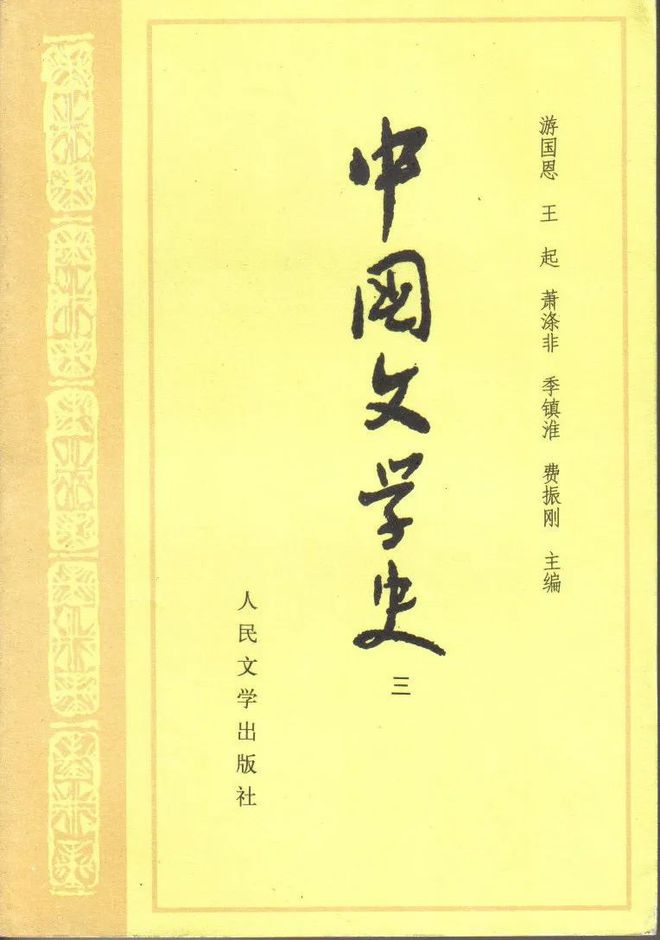 游国恩 王 起 萧涤非 季镇淮 费振刚 主编
中国文学史
三
人民文学出版社